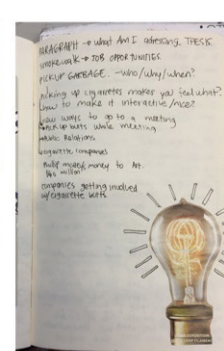 PARAGRAPH → what Am I adressing, THESIS
smoke walk → JOB OPPORTUNITIES
PICK UP GARBAGE. - who/why/when?
picking up cigarettes makes you feel what?
how to make it interactive/nice?
new ways to go to a meeting
pick up butts while meeting
Public Relations
cigarette companies
money to Art.
million
companies getting involved
w/cigarette butts